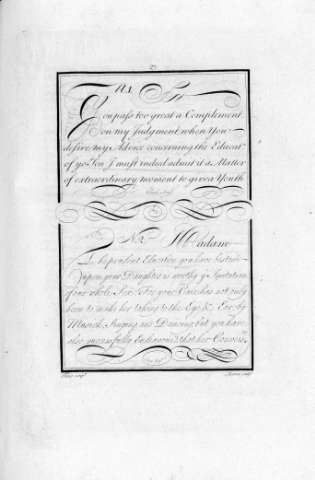 N.1. Sr.
You pass too great a Complement
on my Judgment when You
desire my Advice concerning the Educat.
of yr. Son I must indeed admit it a Matter
of extraordinary moment to give a Youth
N.2. Madam
The prudent Education you have bestow'd
upon your Daughter is worthy ye Imitation
of your whole Sex: For your Care has not only
been to make her taking to the Eye & Ear by
Musick, Singing and Dancing but you have
also successfully Endeavour'd that her Convers.